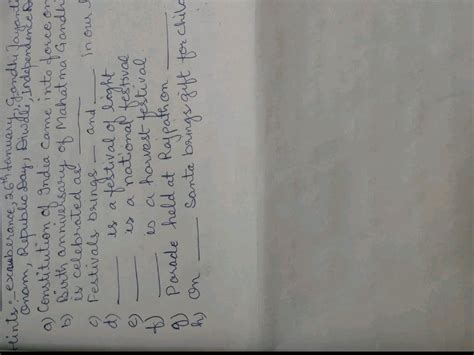 Hints:- exauberance, 26th January, Gandhi Jayanti
Onam, Republic Day, Diwali, Independence
a) Constitution of India came into force on
b) Birth anniversary of Mahatma Gandhi
is celebrated as ____
c) Festivals brings ____ and ____ in our
d) ____ is a festival of light
e) ____ is a national festival
f) ____ is a harvest festival
g) Parade held at Rajpath on ____
h) On ____ Santa brings gift for child